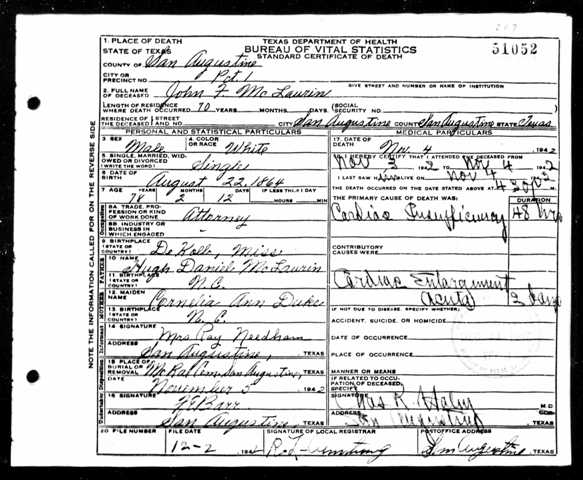 TEXAS DEPARTMENT OF HEALTH
BUREAU OF VITAL STATISTICS
STANDARD CERTIFICATE OF DEATH
51052
1 PLACE OF DEATH
STATE OF TEXAS
COUNTY OF San Augustine
CITY OR PRECINCT NO. Pct. 1
GIVE STREET AND NUMBER OR NAME OF INSTITUTION
2. FULL NAME OF DECEASED John F McLaurin
LENGTH OF RESIDENCE WHERE DEATH OCCURRED 70 YEARS MONTHS DAYS (SOCIAL SECURITY NO.
RESIDENCE OF THE DECEASED STREET AND NO. CITY San Augustine COUNTY San Augustine STATE Texas
PERSONAL AND STATISTICAL PARTICULARS
3 SEX Male
4 COLOR OR RACE White
5 SINGLE, MARRIED, WIDOWED OR DIVORCED (WRITE THE WORD) Single
6 DATE OF BIRTH August 22, 1864
7 AGE YEARS MONTHS DAYS IF LESS THN. 1 DAY
78 2 12 HOURS MIN
8A. TRADE, PROFESSION OR KIND OF WORK DONE Attorney
8B. INDUSTRY OR BUSINESS IN WHICH ENGAGED
9 BIRTHPLACE (STATE OR COUNTRY) De Kalb, Miss
10 NAME Hugh Daniel McLaurin
11 BIRTHPLACE (STATE OR COUNTRY) N.C.
12 MAIDEN NAME Cornelia Ann Duke
13 BIRTHPLACE (STATE OR COUNTRY) N.C.
14 SIGNATURE Mrs Ray Needham
ADDRESS San Augustine, TEXAS
15 PLACE OF BURIAL OR REMOVAL San Augustine, TEXAS
DATE November 5 1942
16 SIGNATURE
ADDRESS San Augustine TEXAS
MEDICAL PARTICULARS
17. DATE OF DEATH Nov. 4 1942
I HEREBY CERTIFY THAT I ATTENDED THE DECEASED FROM
Nov 3 1942 TO Nov 4 1942
I LAST SAW HIM ALIVE ON Nov 4
THE DEATH OCCURRED ON THE DATE STATED ABOVE AT 4
THE PRIMARY CAUSE OF DEATH WAS: DURATION
Cardiac Insufficiency 48 hrs
CONTRIBUTORY CAUSES WERE:
Cardiac Enlargement
(Acute) 2 days
IF NOT DUE TO DISEASE, SPECIFY WHETHER:
ACCIDENT, SUICIDE, OR HOMICIDE
DATE OF OCCURRENCE
PLACE OF OCCURRENCE
MANNER OR MEANS
IF RELATED TO OCCUPATION OF DECEASED, SPECIFY
SIGNATURE Chas R. Haley M D
ADDRESS San Augustine TEXAS
20 FILE NUMBER FILE DATE SIGNATURE OF LOCAL REGISTRAR POSTOFFICE ADDRESS
12-2 194 San Augustine TEXAS
NOTE THE INFORMATION CALLED FOR ON THE REVERSE SIDE